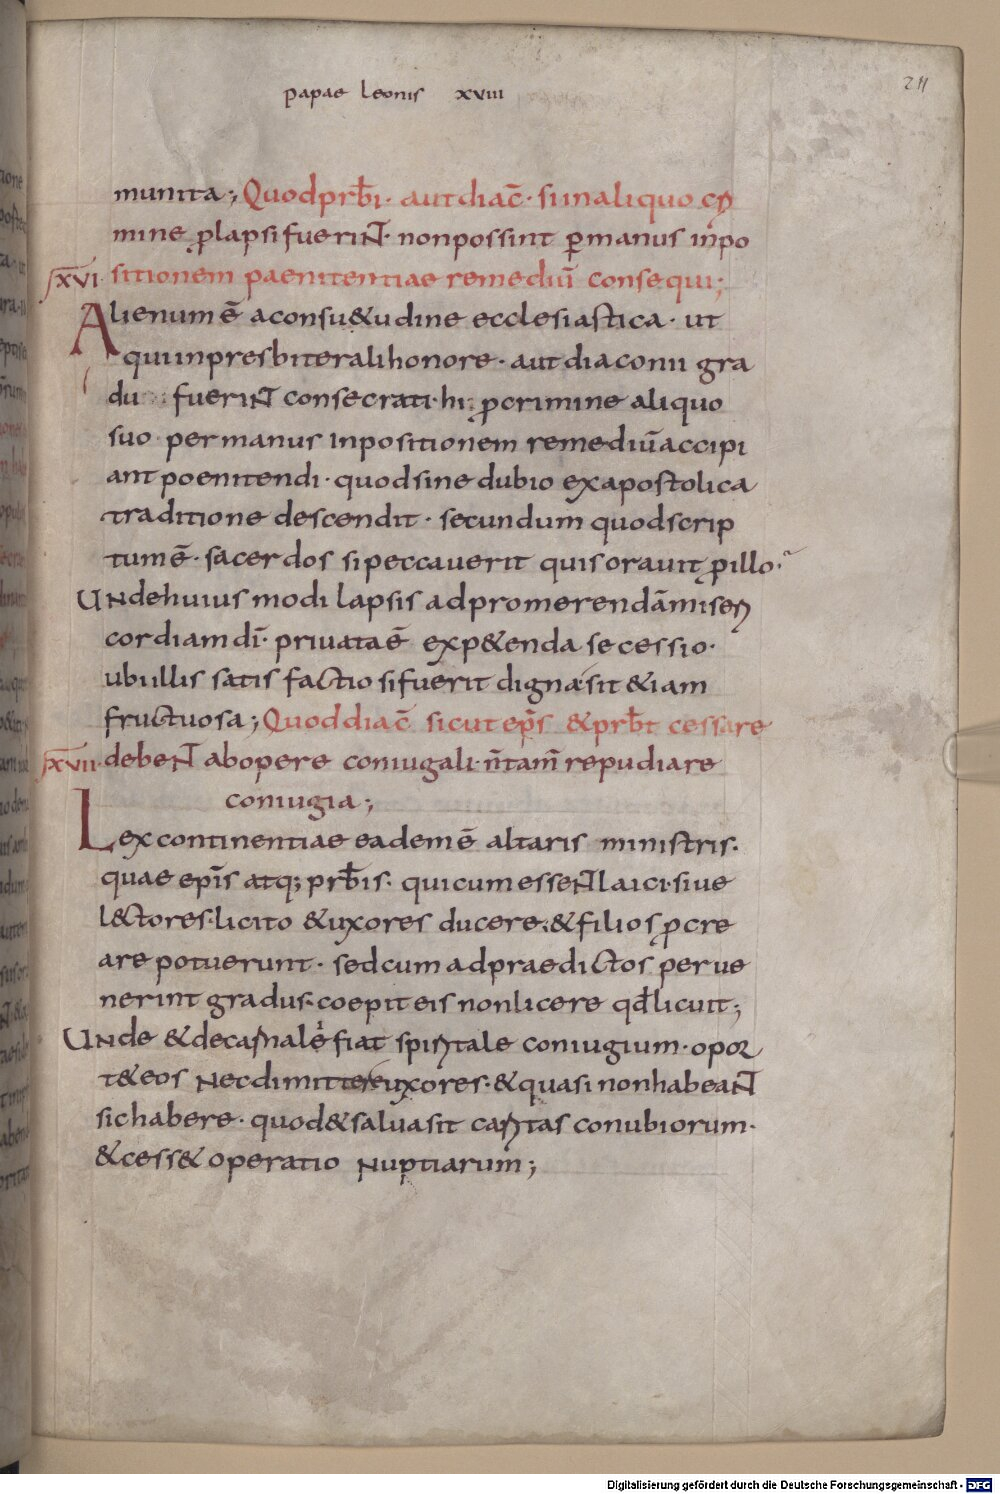 papae leonis xviii
211
munita; Quod prb̄i · aut diac̄ · si in aliquo cri
mine p̲lapsi fuerint · non possint p̲ manus inpo
xvi sitionem paenitentiae remediū consequi;
Alienum ē a consu&udine ecclesiastica · ut
qui in presbiterali honore · aut diaconii gra
du fuerint consecrati · hi p̲ crimine aliquo
suo per manus inpositionem remediū accipi
ant poenitendi · quod sine dubio ex apostolica
traditione descendit · secundum quod scrip
tum ē · sacerdos si peccauerit quis orauit p̲ illo ·
Unde huius modi lapsis ad promerendā miseri
cordiam dī · priuata ē exp&enda secessio ·
ubi illis satisfactio si fuerit digna sit &iam
fructuosa; Quod diac̄ sicut ep̄s & prb̄t cessare
xvii debent ab opere coniugali · n̄ tam̄ repudiare
coniugia;
Lex continentiae eadem ē altaris ministris ·
quae ep̄is atq; prb̄is · qui cum essent laici · siue
l&ctores · licito & uxores ducere · & filios p̲cre
are potuerunt · sed cum ad praedictos perue
nerint gradus · coepit eis non licere qd̄ licuit;
Unde & de carnale fiat spiritale coniugium · opor
t& eos nec dimittere uxores · & quasi non habeant
sic habere · quod & salua sit caritas conubiorum ·
& cess& operatio nuptiarum;
Digitalisierung gefördert durch die Deutsche Forschungsgemeinschaft - DFG